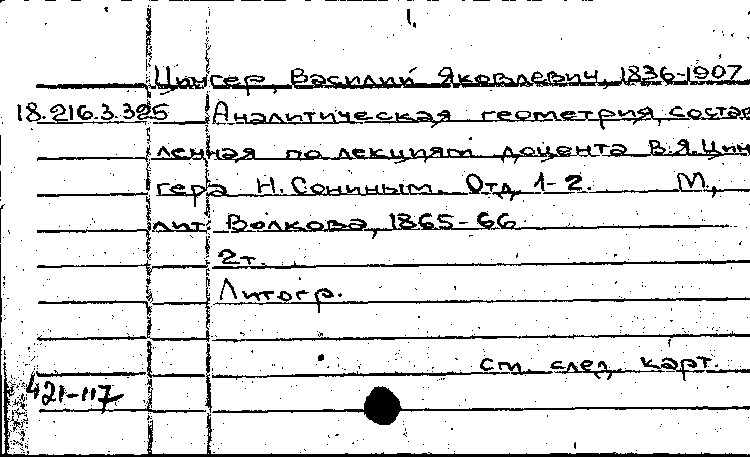 1.
Цингер, Василий Яковлевич, 1836-1907
18.216.3.325 Аналитическая геометрия, состав
ленная по лекциям доцента В.Я.Цин
гера Н.Сониным. Отд. 1-2. М,
лит Волкова, 1865-66
2т.
Литогр.
см. след. карт.
421-117